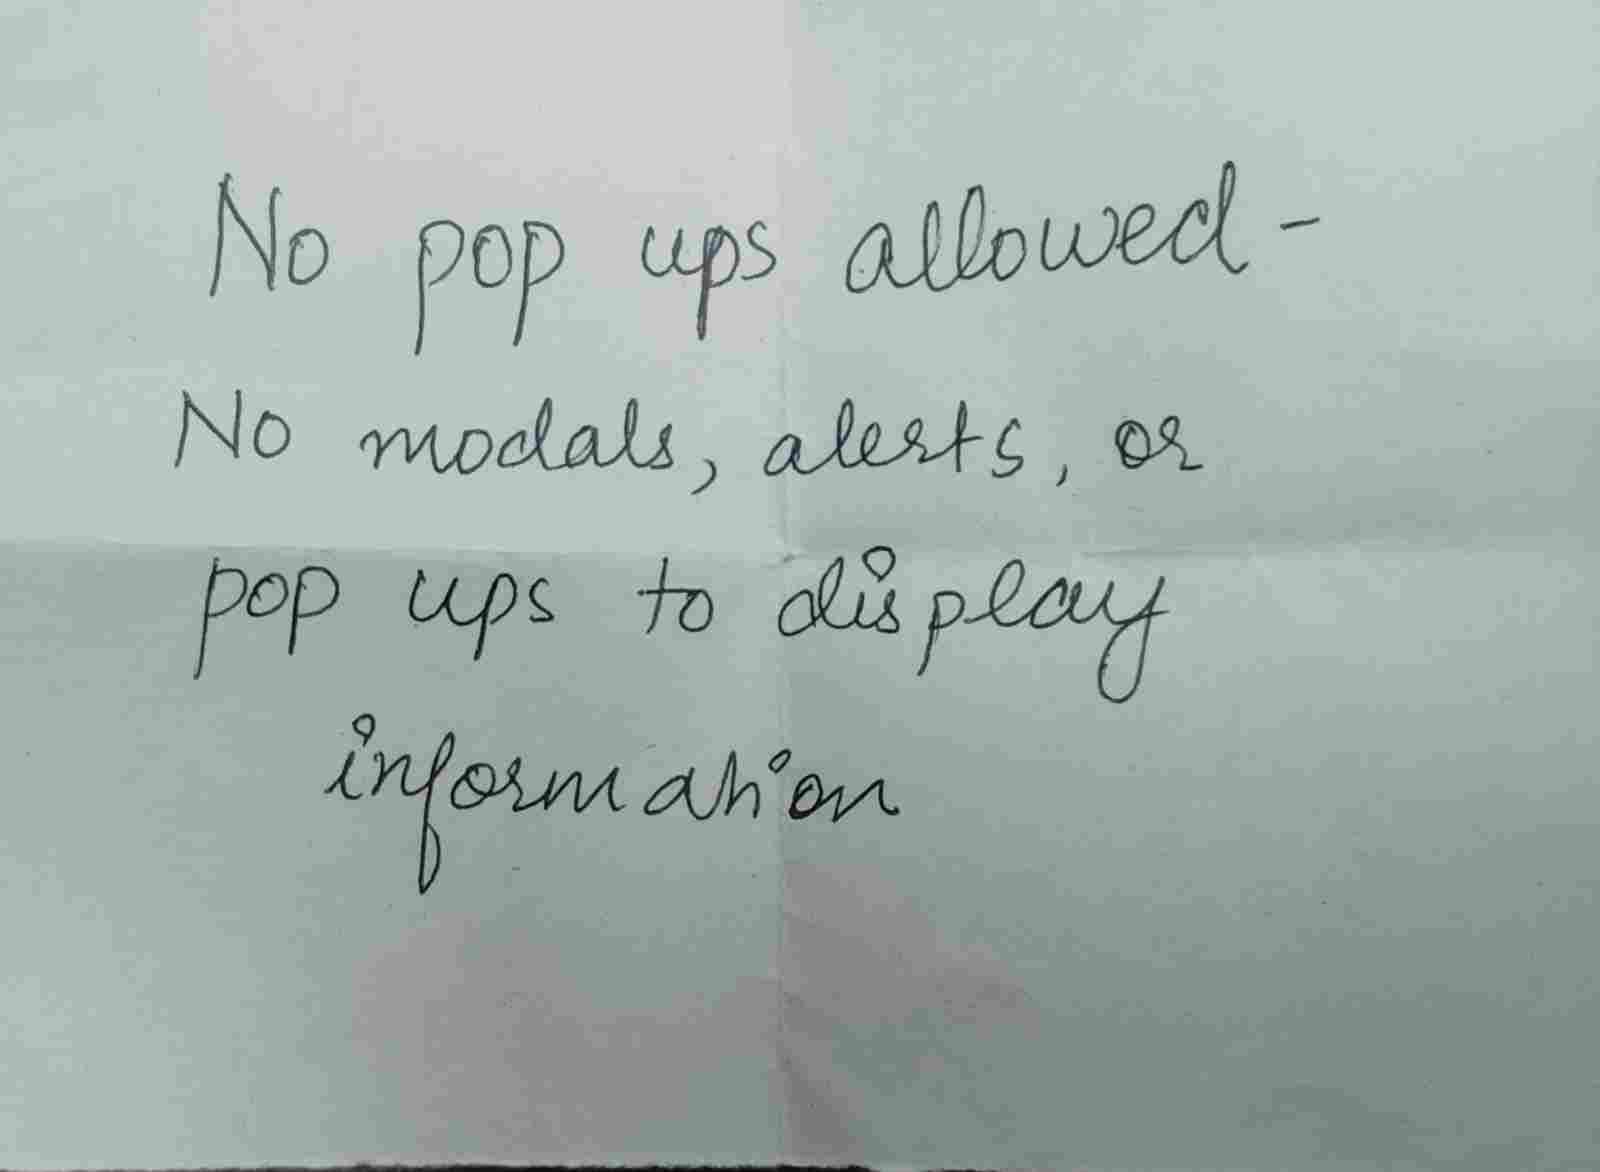 No pop ups allowed -
No modals, alerts, or
pop ups to display
information